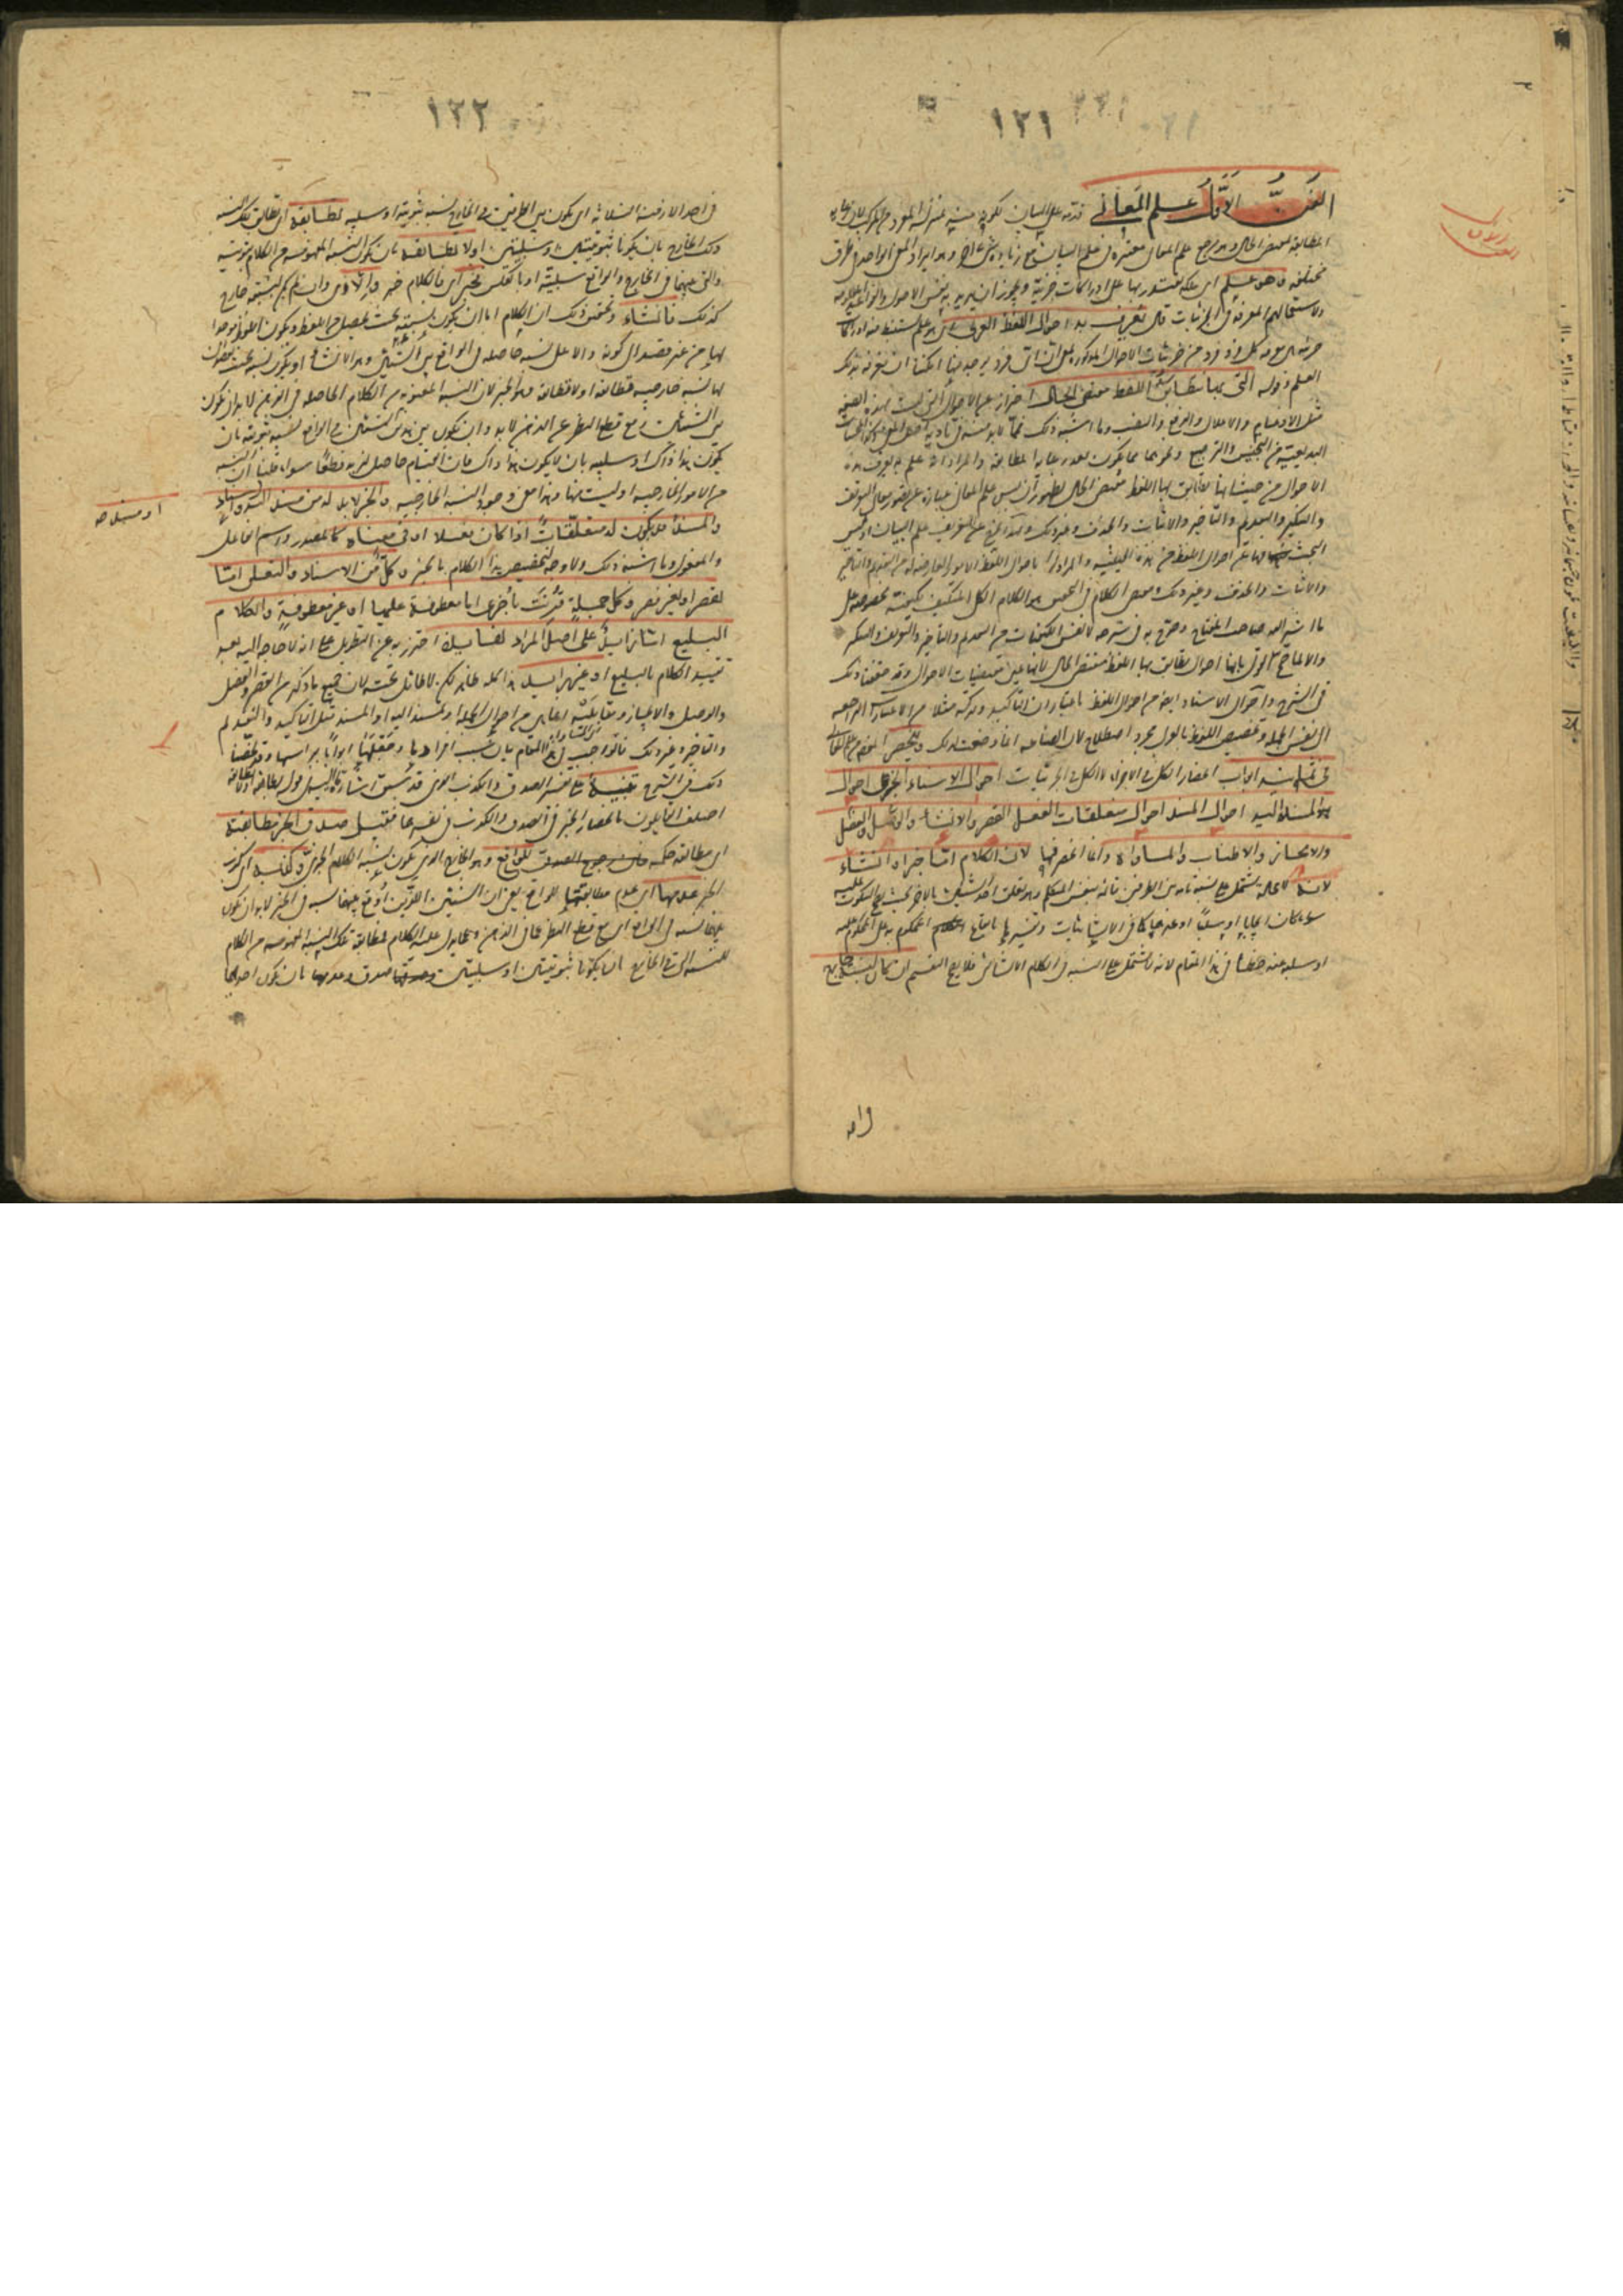 ١٢١
الفن الاول علم المعاني قدمه على البيان لكونه منه بمنزلة المفرد من المركب لان رعاية
المطابقة لمقتضى الحال وهو مرجع علم المعاني معتبرة في علم البيان مع زيادة شئ اخر وهو ايراد المعنى الواحد في طرق
مختلفة وهو علم اى ملكة يقتدر بها على ادراكات جزئية ويجوز ان يريد به نفس الاصول والقواعد المعلومة
ولاستعمالهم المعرفة في الجزئيات قال يعرف به احوال اللفظ العربي اى هو علم يستنبط منه ادراكات
جزئية هى معرفة كل فرد فرد من جزئيات الاحوال المذكورة بمعنى ان اى فرد يوجد منها امكننا ان نعرفه بذلك
العلم وقوله التى بها يطابق اللفظ مقتضى الحال احتراز عن الاحوال التى ليست بهذه الصفة
مثل الادغام والاعلال والرفع والنصب وما اشبه ذلك مما لا بد منه في تأدية اصل المعنى وكذا المحسنات
البديعية من التجنيس والترصيع ونحوهما مما يكون بعد رعاية المطابقة والمراد انه علم به يعرف هذه
الاحوال من حيث انها يطابق بها اللفظ مقتضى الحال لظهور ان ليس علم المعانى عبارة عن تصور معانى التعريف
والتنكير والتقديم والتأخير والاثبات والحذف وغير ذلك وبهذا يخرج عن التعريف علم البيان اذ ليس
البحث فيه عن احوال اللفظ من هذه الحيثية والمراد باحوال اللفظ الامور العارضة له من التقديم والتأخير
والاثبات والحذف وغير ذلك ومقتضى الحال في التحقيق هو الكلام الكلى المتكيف بكيفية مخصوصة على
ما اشير اليه في المفتاح وصرح به في شرحه لا نفس الكيفيات من التقديم والتأخير والتعريف والتنكير
والا لما صح القول بانها احوال يطابق بها اللفظ مقتضى الحال لانها عين مقتضيات الاحوال وقد حققنا ذلك
في الشرح واحوال الاسناد ايضا من احوال اللفظ باعتبار ان التأكيد وتركه مثلا من الاعتبارات الراجعة
الى نفس الجملة وتخصيص اللفظ بالعربى مجرد اصطلاح لان الصناعة انما وضعت لذلك وينحصر المقصود من علم المعانى
في ثمانية ابواب انحصار الكل في الاجزاء لا الكلى في الجزئيات احوال الاسناد الخبرى احوال
المسند اليه احوال المسند احوال متعلقات الفعل القصر والانشاء والوصل والفصل
والايجاز والاطناب والمساواة وانما انحصر فيها لان الكلام اما خبر او انشاء
لانه لا محالة يشتمل على نسبة تامة بين الطرفين قائمة بنفس المتكلم وهو تعلق احد الشيئين بالاخر بحيث يصح السكوت عليه
سواء كان ايجابا او سلبا او غيرهما كما في الانشائيات وتفسيرها بايقاع المحكوم به على المحكوم عليه
او سلبه عنه خطأ في هذا المقام لانه لا يشتمل على النسبة في الكلام الانشائى فلا يصح التقسيم ان كان لنسبته خارج
١٢٢
في احد الازمنة الثلاثة اى يكون بين الطرفين في الخارج نسبة ثبوتية او سلبية تطابقه اى تطابق تلك النسبة
ذلك الخارج بان يكونا ثبوتيتين او سلبيتين او لا تطابقه بان يكون النسبة المفهومة من الكلام ثبوتية
والتى بينهما في الخارج والواقع سلبية او بالعكس فخبر اى فالكلام خبر والا اى وان لم يكن لنسبته خارج
كذلك فانشاء وتحقيق ذلك ان الكلام اما ان يكون نسبته بحيث تحصل من اللفظ ويكون اللفظ موجدا
لها من غير قصد الى كونه دالا على نسبة حاصلة في الواقع بين الشيئين وهو الانشاء او يكون نسبته بحيث يقصد ان
لها نسبة خارجية تطابقه او لا تطابقه وهو الخبر لان النسبة المفهومة من الكلام الحاصلة في الذهن لا بد ان تكون
بين الشيئين ومع قطع النظر عن الذهن لا بد وان يكون بين هذين الشيئين في الواقع نسبة ثبوتية بان
يكون هذا ذاك او سلبية بان لا يكون هذا ذاك فان القيام حاصل لزيد قطعا سواء قلنا ان النسبة
من الامور الخارجية او ليست منها وهذا معنى وجود النسبة الخارجية والخبر لا بد له من مسند اليه ومسند واسناد
والمسند قد يكون له متعلقات اذا كان فعلا او فى معناه كالمصدر واسم الفاعل
والمفعول وما اشبه ذلك ولا وجه لتخصيص هذا الكلام بالخبر وكل من الاسناد والتعلق اما
بقصر او بغير قصر وكل جملة قرنت باخرى اما معطوفة عليها او غير معطوفة والكلام
البليغ اما زايد على اصل المراد لفايدة احترز به عن التطويل على انه لا حاجة اليه بعد
تقييد الكلام بالبليغ او غير زايد هذا كله ظاهر لكن لا طائل تحته لان جميع ما ذكره من القصر والفصل
والوصل والايجاز ومقابليه انما هى من احوال الجملة او المسند اليه او المسند مثل التأكيد والتقديم
والتأخير وغير ذلك فالواجب في هذا المقام بيان سبب افرادها وجعلها ابوابا برأسها وقد لخصنا
ذلك في الشرح تنبيه على تفسير الصدق والكذب الذى قد سبق اشارة ما اليه في قوله تطابقه او لا تطابقه
اختلف القائلون بانحصار الخبر في الصدق والكذب في تفسيرهما فقيل صدق الخبر مطابقته
اى مطابقة حكمه للواقع وهو الخارج الذى يكون لنسبة الكلام الخبرى وكذبه اى كذب
الخبر عدمها اى عدم مطابقته للواقع يعنى ان الشيئين اللذين اوقع بينهما نسبة في الخبر لا بد وان يكون
بينهما نسبة في الواقع اى مع قطع النظر عما في الذهن وعما يدل عليه الكلام فمطابقة تلك النسبة المفهومة من الكلام
للنسبة التى في الخارج بان يكونا ثبوتيتين او سلبيتين صدق وعدمها بان يكون احديهما